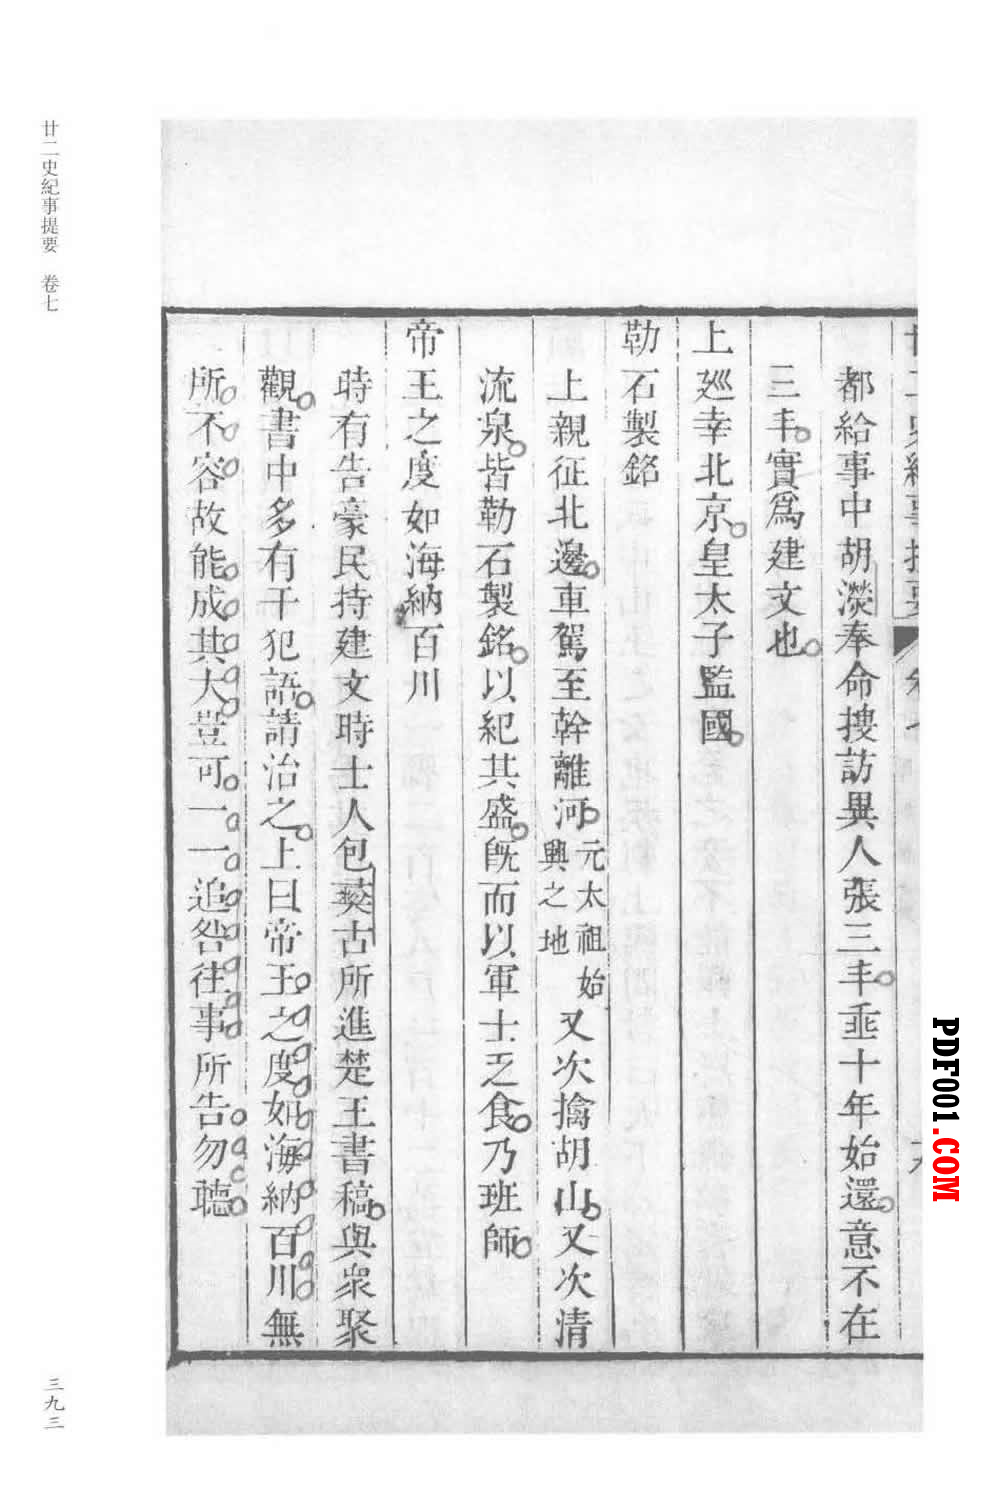 廿二史紀事提要　卷七
都給事中胡濙奉命搜訪異人張三丰垂十年始還意不在
三丰實爲建文也
上廵幸北京皇太子監國
勒石製銘
上親征北邊車駕至斡離河元太祖始興之地又次擒胡山又次清
流泉皆勒石製銘以紀其盛旣而以軍士乏食乃班師
帝王之度如海納百川
時有告豪民持建文時士人包彛古所進楚王書稿與衆聚
觀書中多有干犯語請治之上曰帝王之度如海納百川無
所不容故能成其大豈可一一追咎往事所告勿聽
三九三
PDF001.COM